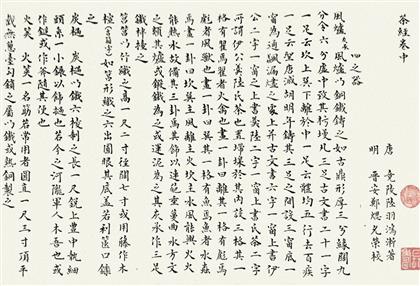 茶經卷中
唐 竟陵陸羽鴻漸著
明 晉安鄭熜允榮校
四之器
風爐灰承 風爐以銅鐵鑄之如古鼎形厚三分緣闊九
分令六分虛中致其杇墁凡三足古文書二十一字
一足云坎上巽下離于中一足云體均五行去百疾
一足云聖唐滅胡明年鑄其三足之間設三窗底一
窗為通飆漏燼之所上并古文書六字一窗上書伊
公二字一窗上書羹陸二字一窗上書氏茶二字
所謂伊公羹陸氏茶也置墆㙞於其內設三格其一
格有翟焉翟者火禽也畫一卦曰離其一格有彪焉
彪者風獸也畫一卦曰巽其一格有魚焉魚者水蟲
焉畫一卦曰坎巽主風離主火坎主水風能興火火
能熟水故備其三卦焉其飾以連葩垂蔓曲水方文
之類其爐或鍛鐵為之或運泥為之其灰承作三足
鐵柈擡之
筥 筥以竹織之高一尺二寸徑闊七寸或用藤作木
楦古筥字如筥形織之六出圓眼其底蓋若利篋口鑠
之
炭檛 炭檛以鐵六稜制之長一尺銳上豐中執細
頭系一小鐶以飾檛也若今之河隴軍人木吾也或
作鎚或作斧隨其便也
火筴 火筴一名筯若常用者圓直一尺三寸頂平
截無葱臺勾鏁之屬以鐵或熟銅製之